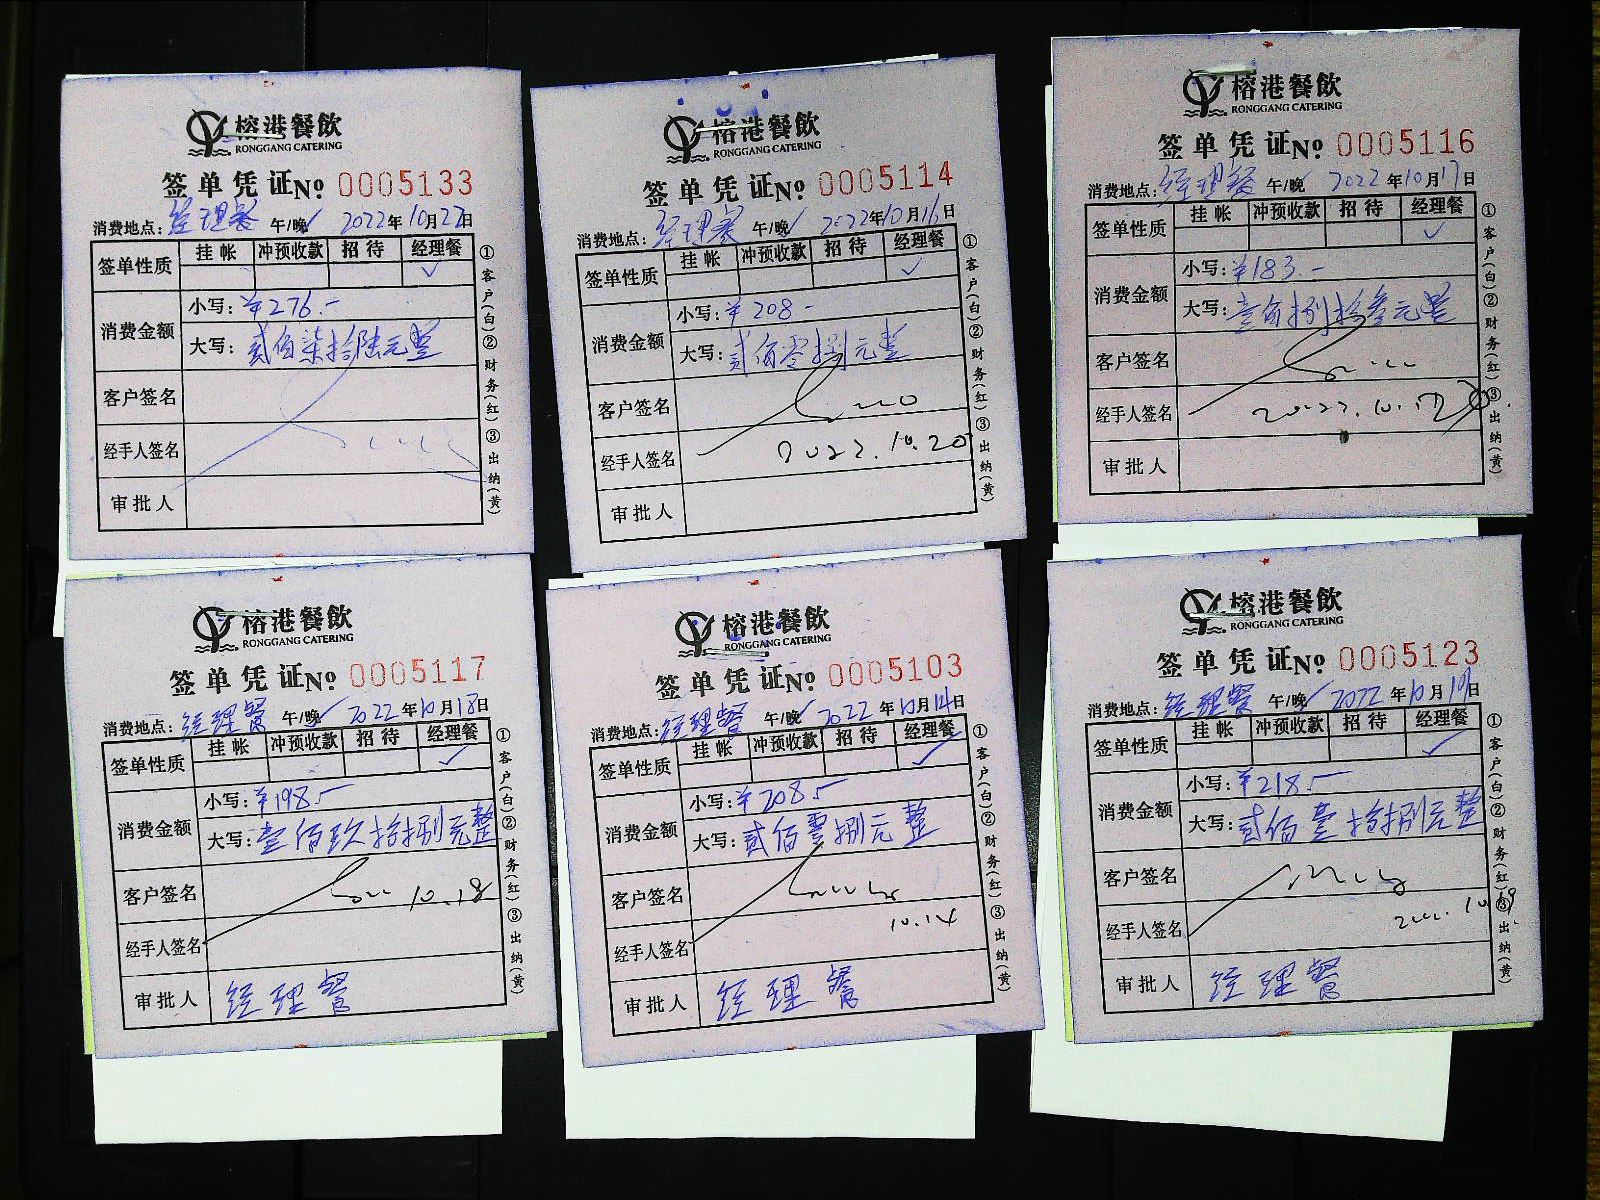 榕港餐飲
RONGGANG CATERING
签单凭证No 0005133
消费地点：经理餐 午/晚✓ 2022年10月22日
签单性质 挂帐 冲预收款 招待 经理餐
✓
消费金额 小写：¥276.-
大写：贰佰柒拾陆元整
客户签名
经手人签名
审批人
①客户(白)②财务(红)③出纳(黄)
榕港餐飲
RONGGANG CATERING
签单凭证No 0005114
消费地点：经理餐 午/晚✓ 2022年10月16日
签单性质 挂帐 冲预收款 招待 经理餐
✓
消费金额 小写：¥208-
大写：贰佰零捌元整
客户签名
经手人签名 2022.10.20
审批人
①客户(白)②财务(红)③出纳(黄)
榕港餐飲
RONGGANG CATERING
签单凭证No 0005116
消费地点：经理餐 午/晚 2022年10月17日
签单性质 挂帐 冲预收款 招待 经理餐
✓
消费金额 小写：¥183.-
大写：壹佰捌拾叁元整
客户签名
经手人签名 2022.10.17
审批人
①客户(白)②财务(红)③出纳(黄)
榕港餐飲
RONGGANG CATERING
签单凭证No 0005117
消费地点：经理餐 午/晚✓ 2022年10月18日
签单性质 挂帐 冲预收款 招待 经理餐
✓
消费金额 小写：¥198.-
大写：壹佰玖拾捌元整
客户签名 10.18
经手人签名
审批人 经理餐
①客户(白)②财务(红)③出纳(黄)
榕港餐飲
RONGGANG CATERING
签单凭证No 0005103
消费地点：经理餐 午/晚✓ 2022年10月14日
签单性质 挂帐 冲预收款 招待 经理餐
✓
消费金额 小写：¥208.-
大写：贰佰零捌元整
客户签名
经手人签名 10.14
审批人 经理餐
①客户(白)②财务(红)③出纳(黄)
榕港餐飲
RONGGANG CATERING
签单凭证No 0005123
消费地点：经理餐 午/晚✓ 2022年10月19日
签单性质 挂帐 冲预收款 招待 经理餐
✓
消费金额 小写：¥218.-
大写：贰佰壹拾捌元整
客户签名
经手人签名 10.19
审批人 经理餐
①客户(白)②财务(红)③出纳(黄)